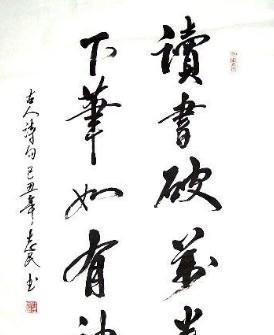 讀書破萬卷
下筆如有神
古人詩句己丑年